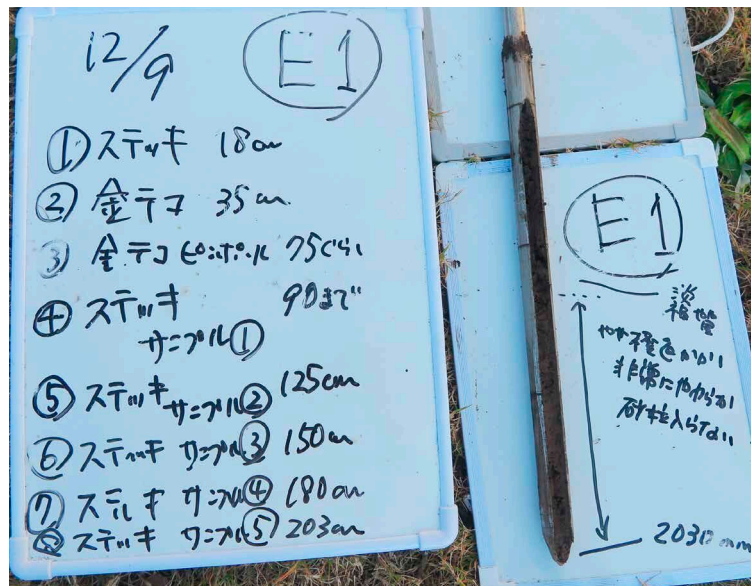 12/9 E1
① ステッキ 18cm
② 金テコ 35cm
③ 金テコ ピンポール 75ぐらい
④ ステッキ 90まで
サンプル①
⑤ ステッキ サンプル② 125cm
⑥ ステッキ サンプル③ 150cm
⑦ ステッキ サンプル④ 180cm
⑧ ステッキ サンプル⑤ 203cm
E1
やや橙色がかり
非常にやわらかい
砂粒入らない
2030mm